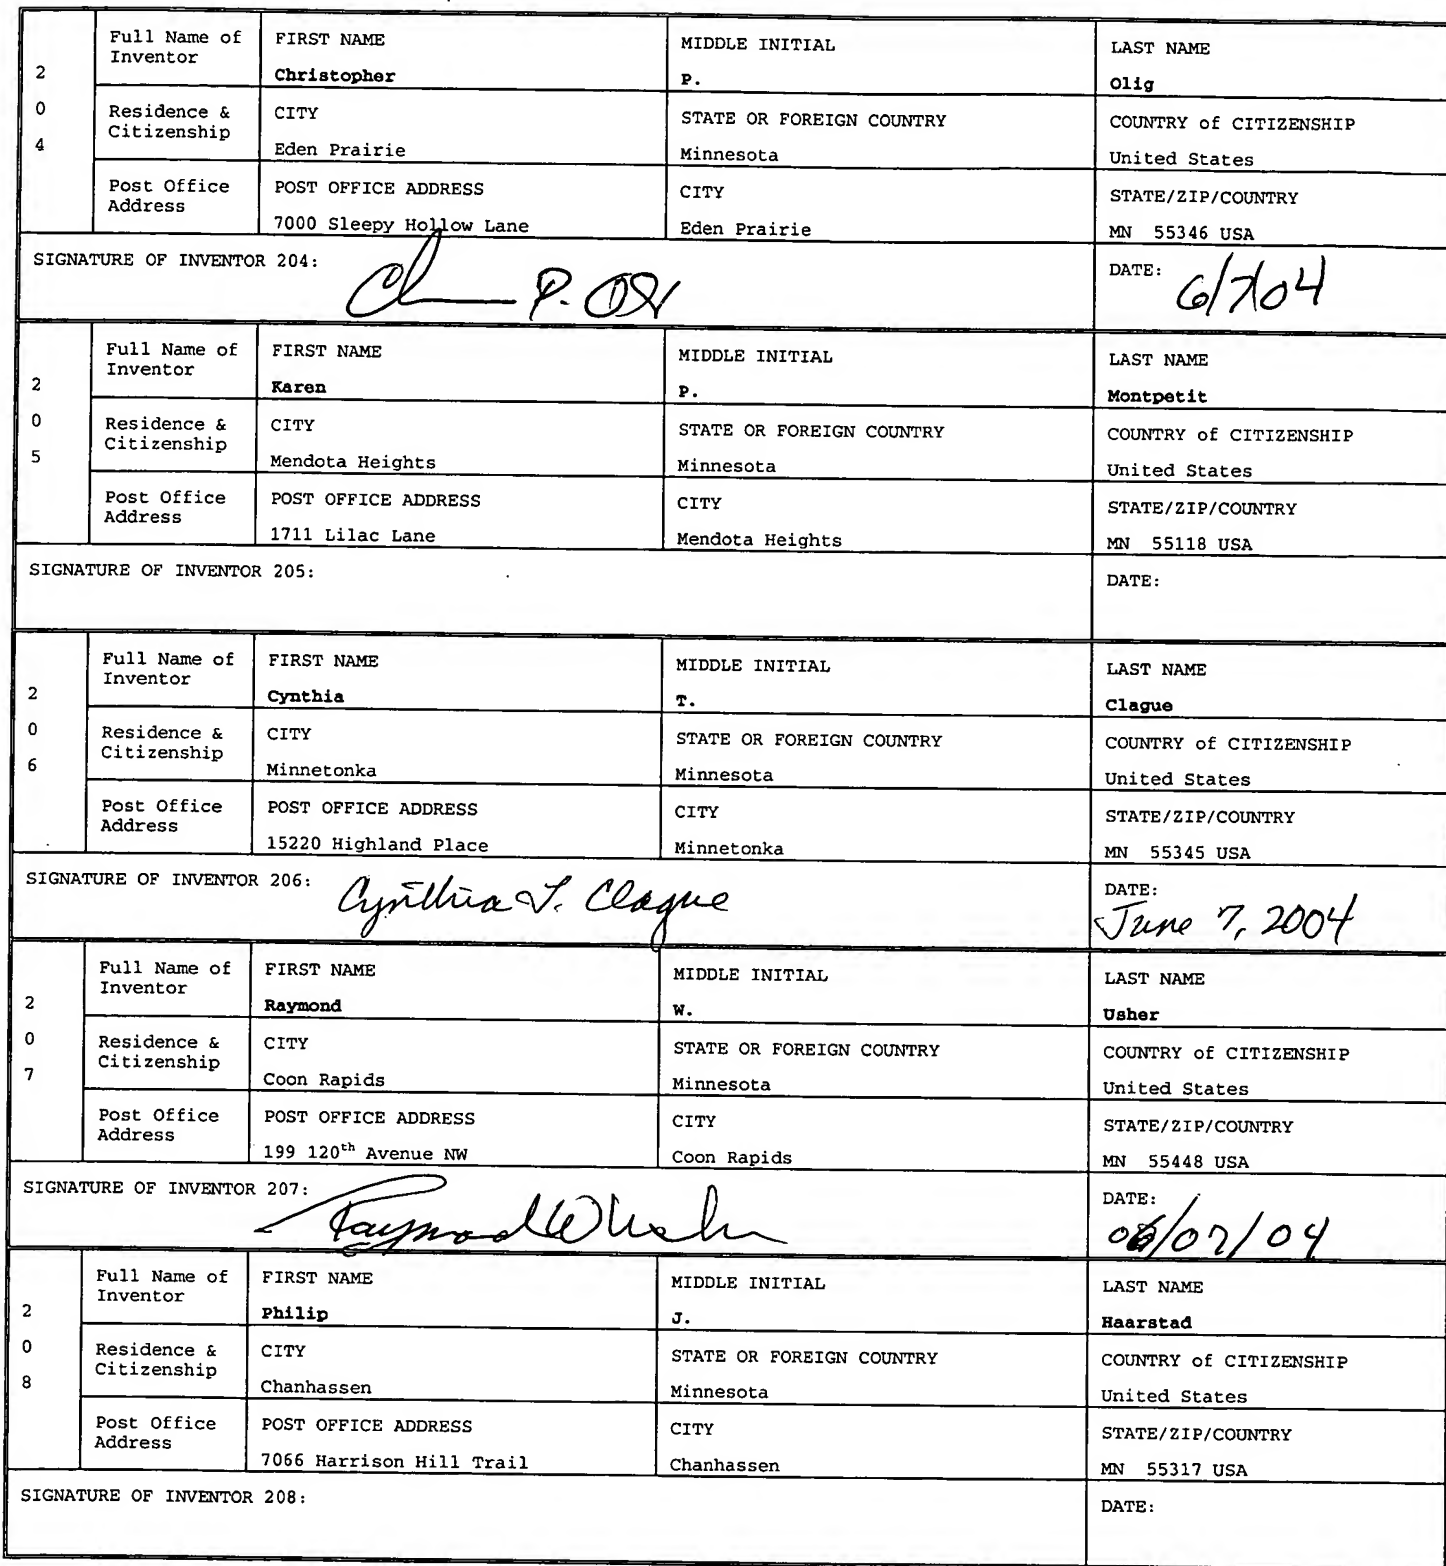 2 0 4
Full Name of Inventor
FIRST NAME
Christopher
MIDDLE INITIAL
P.
LAST NAME
Olig
Residence & Citizenship
CITY
Eden Prairie
STATE OR FOREIGN COUNTRY
Minnesota
COUNTRY of CITIZENSHIP
United States
Post Office Address
POST OFFICE ADDRESS
7000 Sleepy Hollow Lane
CITY
Eden Prairie
STATE/ZIP/COUNTRY
MN 55346 USA
SIGNATURE OF INVENTOR 204:
P.
DATE: 6/7/04
2 0 5
Full Name of Inventor
FIRST NAME
Karen
MIDDLE INITIAL
P.
LAST NAME
Montpetit
Residence & Citizenship
CITY
Mendota Heights
STATE OR FOREIGN COUNTRY
Minnesota
COUNTRY of CITIZENSHIP
United States
Post Office Address
POST OFFICE ADDRESS
1711 Lilac Lane
CITY
Mendota Heights
STATE/ZIP/COUNTRY
MN 55118 USA
SIGNATURE OF INVENTOR 205:
DATE:
2 0 6
Full Name of Inventor
FIRST NAME
Cynthia
MIDDLE INITIAL
T.
LAST NAME
Clague
Residence & Citizenship
CITY
Minnetonka
STATE OR FOREIGN COUNTRY
Minnesota
COUNTRY of CITIZENSHIP
United States
Post Office Address
POST OFFICE ADDRESS
15220 Highland Place
CITY
Minnetonka
STATE/ZIP/COUNTRY
MN 55345 USA
SIGNATURE OF INVENTOR 206: Cynthia T. Clague
DATE:
June 7, 2004
2 0 7
Full Name of Inventor
FIRST NAME
Raymond
MIDDLE INITIAL
W.
LAST NAME
Usher
Residence & Citizenship
CITY
Coon Rapids
STATE OR FOREIGN COUNTRY
Minnesota
COUNTRY of CITIZENSHIP
United States
Post Office Address
POST OFFICE ADDRESS
199 120th Avenue NW
CITY
Coon Rapids
STATE/ZIP/COUNTRY
MN 55448 USA
SIGNATURE OF INVENTOR 207: Raymond W Usher
DATE:
06/07/04
2 0 8
Full Name of Inventor
FIRST NAME
Philip
MIDDLE INITIAL
J.
LAST NAME
Haarstad
Residence & Citizenship
CITY
Chanhassen
STATE OR FOREIGN COUNTRY
Minnesota
COUNTRY of CITIZENSHIP
United States
Post Office Address
POST OFFICE ADDRESS
7066 Harrison Hill Trail
CITY
Chanhassen
STATE/ZIP/COUNTRY
MN 55317 USA
SIGNATURE OF INVENTOR 208:
DATE: